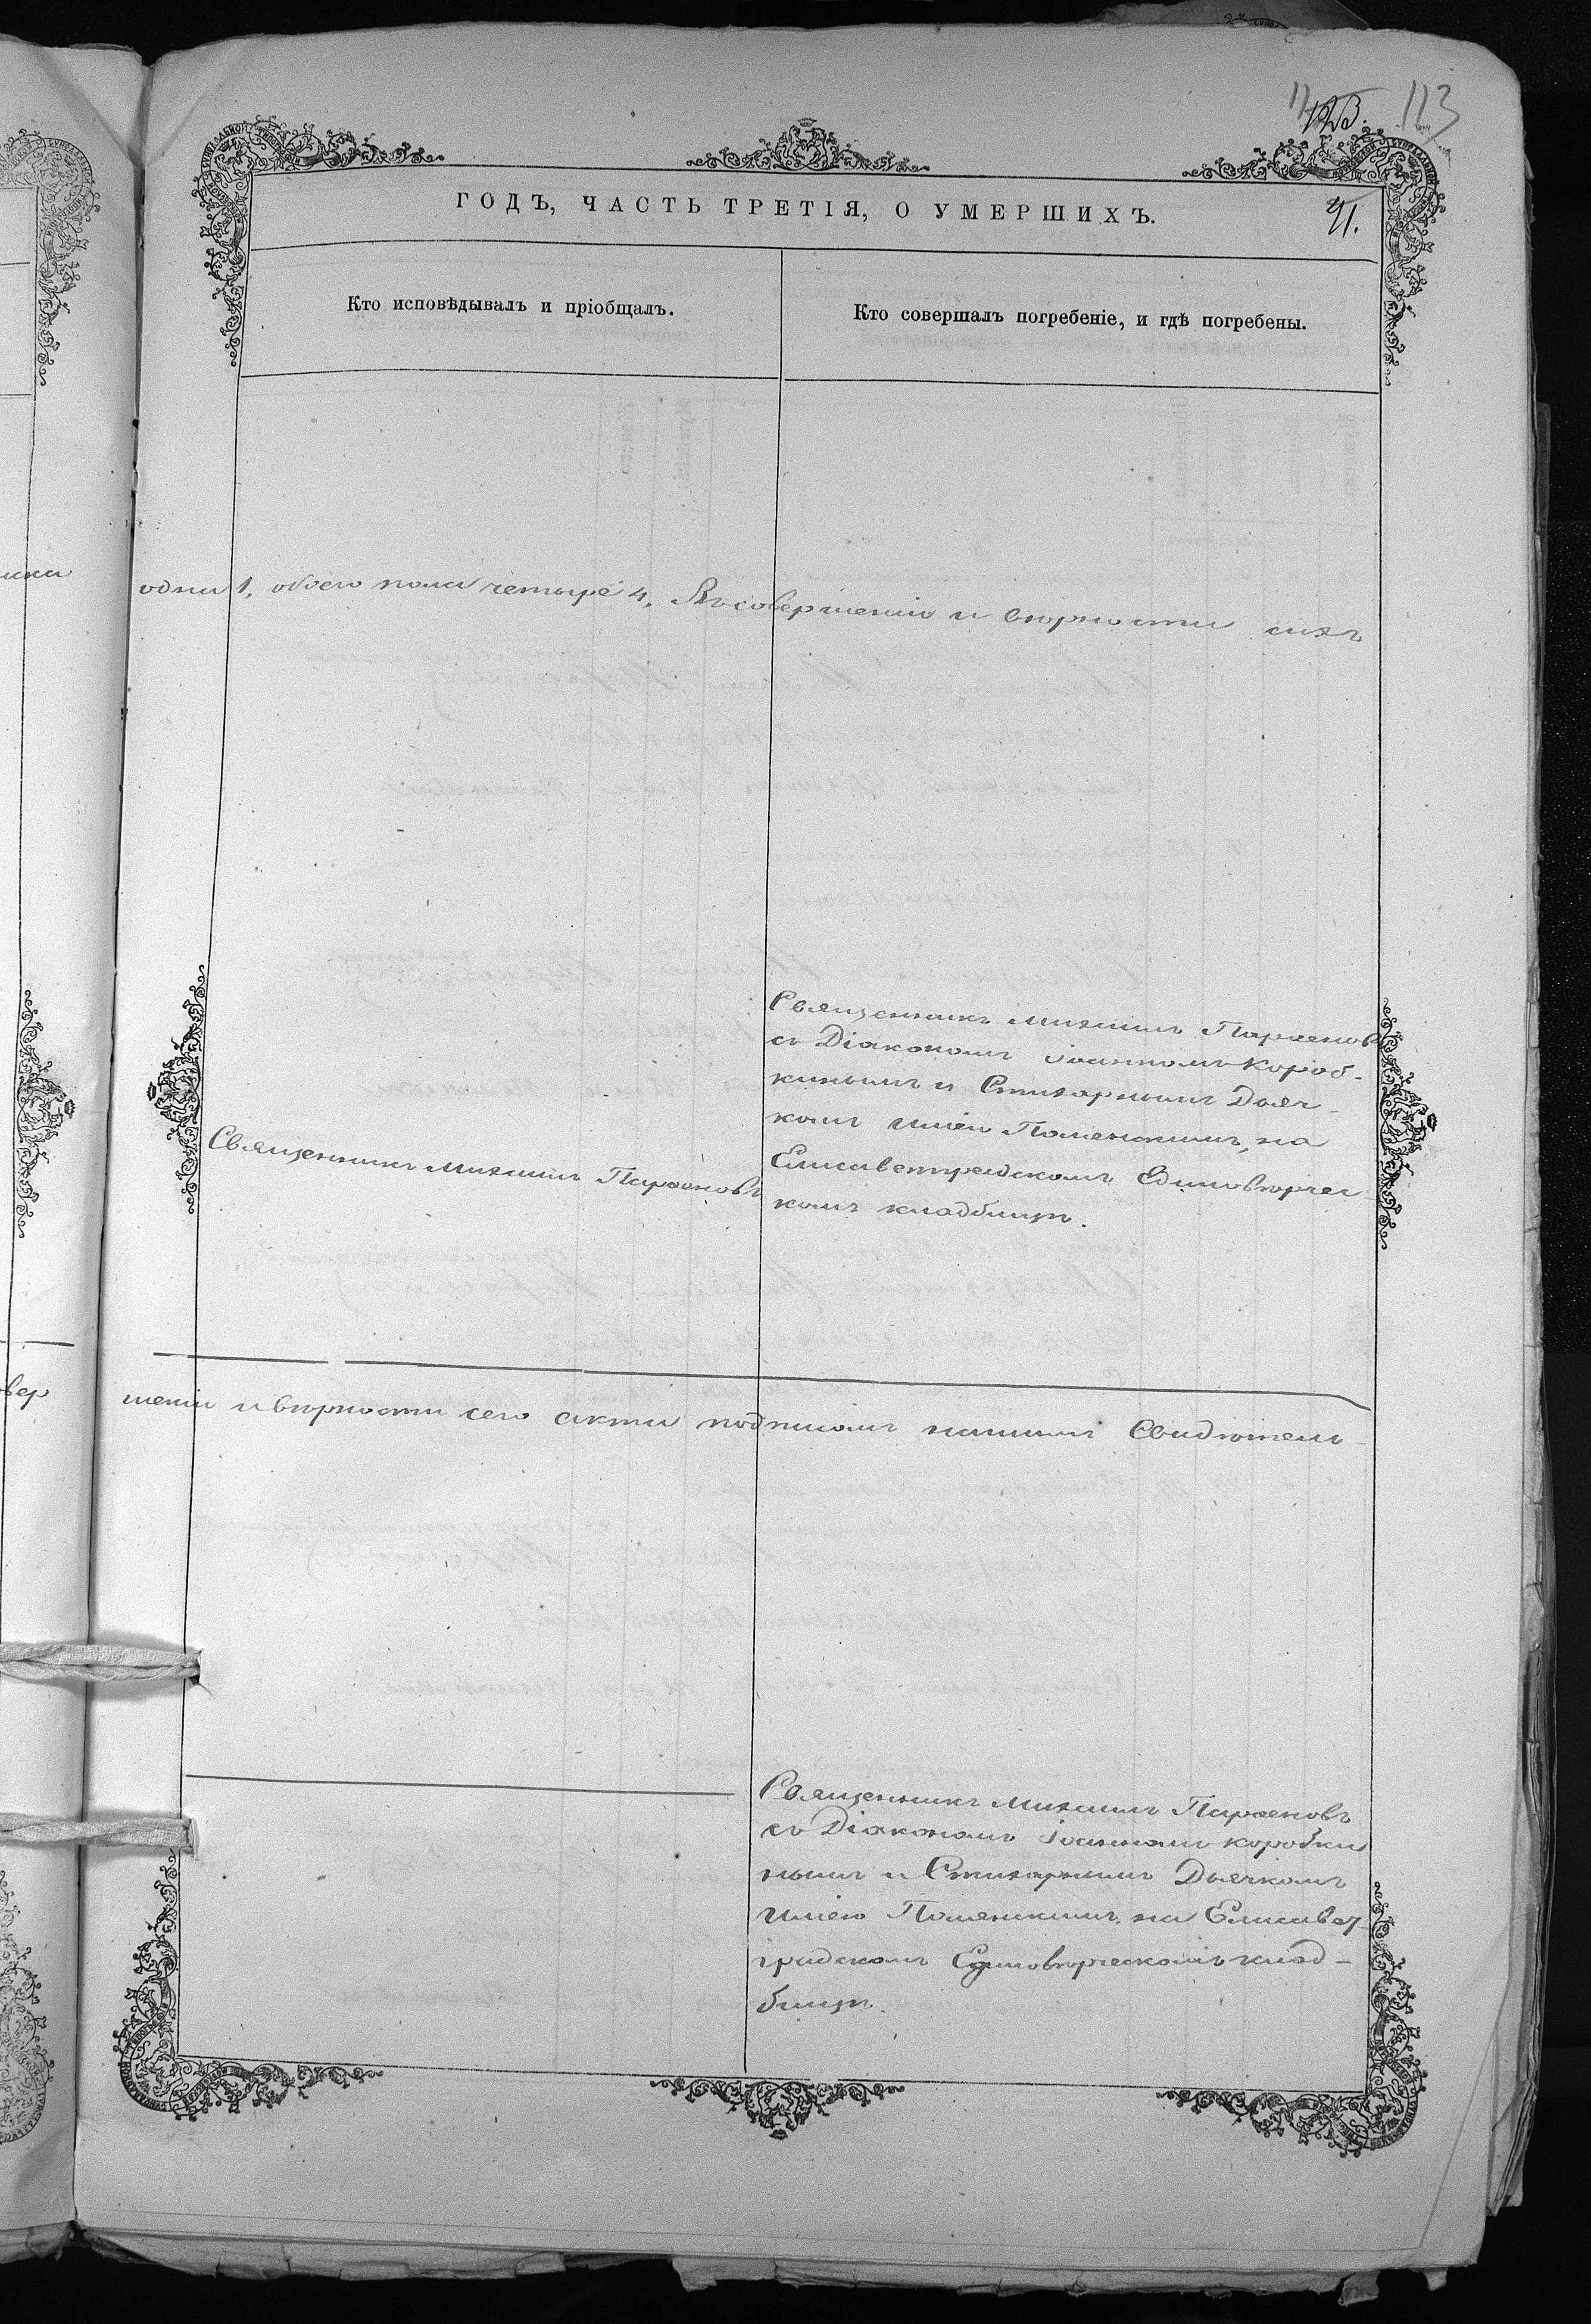 123. 113
ГОДЪ, ЧАСТЬ ТРЕТІЯ, О УМЕРШИХЪ.
41.
Кто исповѣдывалъ и пріобщалъ.
Кто совершалъ погребеніе, и гдѣ погребены.
одна 1, обоего пола четыре 4. Въ совершеніи и вѣрности сихъ
Священникъ Михаилъ Парѳеновъ
Священникъ Михаилъ Парѳеновъ
съ Діакономъ Іоанномъ Короб-
кинымъ и Стихарнымъ Дьяч-
комъ Иліею на
Елисаветградскомъ Единовѣрчес
комъ кладбищѣ.
вер
шеніи и вѣрности сего акта подписомъ нашимъ Свидѣтель-
Священникъ Михаилъ Парѳеновъ
съ Діакономъ Іоанномъ Коробки
нымъ и Стихарнымъ Дьячкомъ
Иліею на Елисавет
градскомъ Единовѣрческомъ клад-
бищѣ.